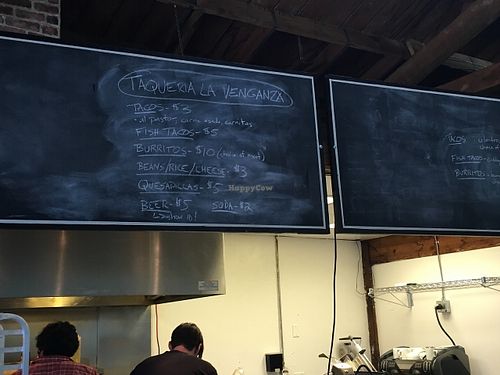 TAQUERIA LA VENGANZA
TACOS - $3
• al pastor, carne asada, carnitas
FISH TACOS - $5
BURRITOS - $10 (choice of meat)
BEANS/RICE/CHEESE - $3
QUESADILLAS - $5
BEER - $5 SODA - $2
↳ show ID!
HappyCow
TACOS
FISH TACOS
BURRITOS